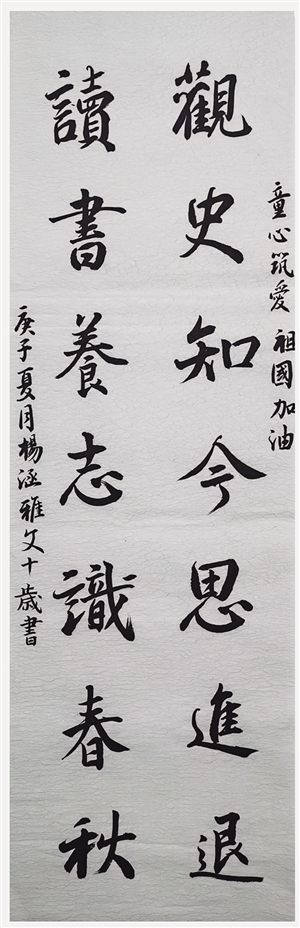 童心筑愛 祖國加油
觀史知今思進退
讀書養志識春秋
庚子夏月楊涵雅文十歲書